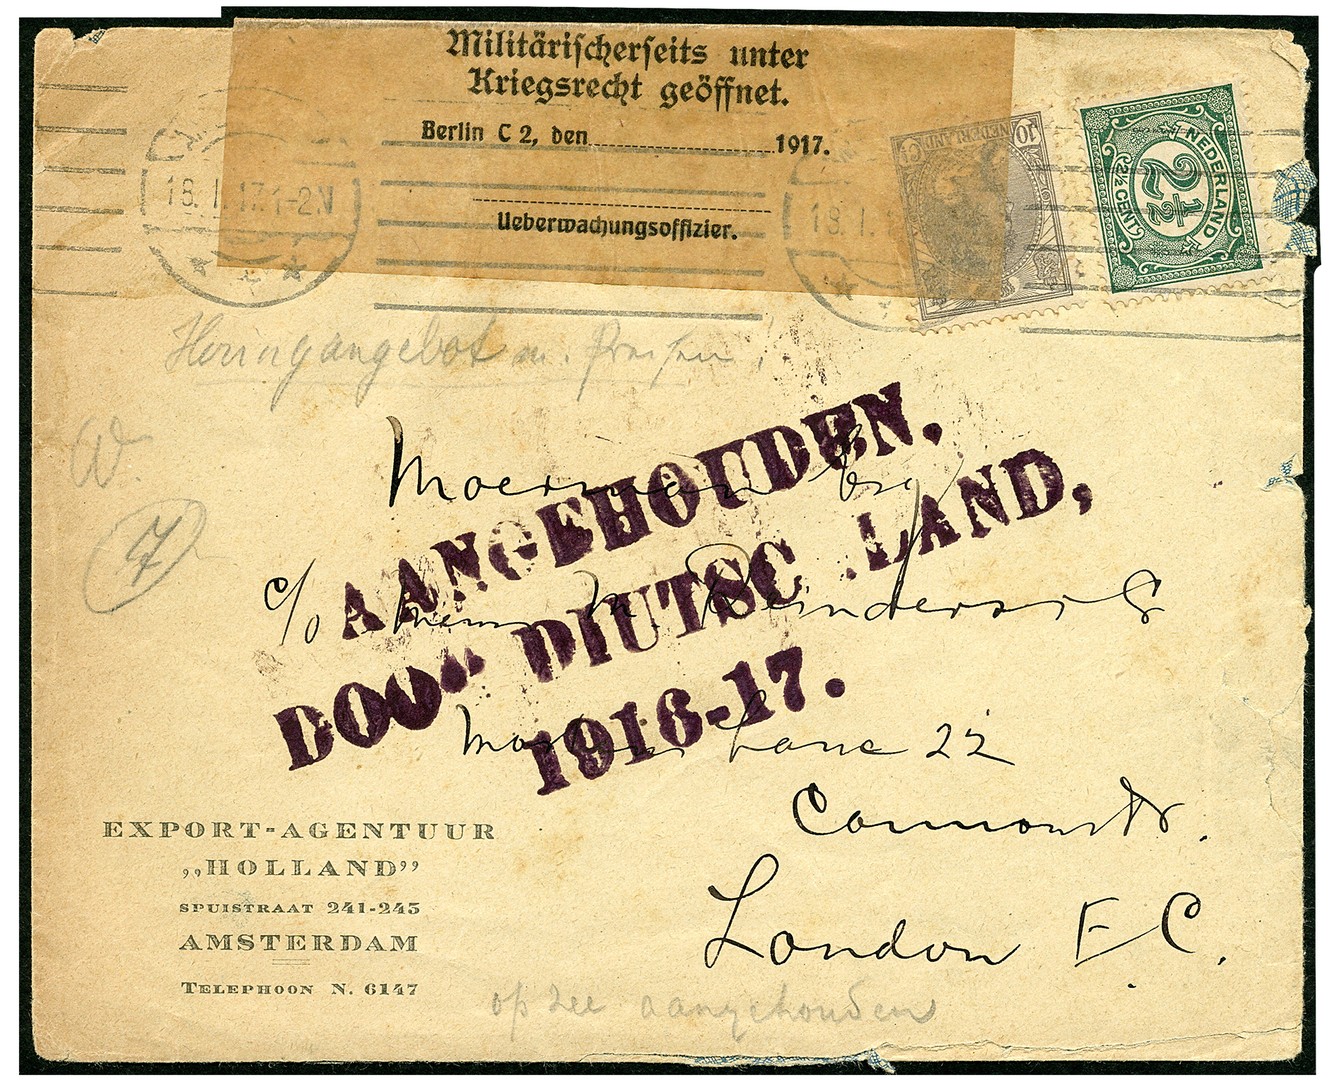 Militärischerseits unter
Kriegsrecht geöffnet.
Berlin C 2, den 1917.
Ueberwachungsoffizier.
18.I.17.1-2N
18.I.1
10 NEDERLAND Ct
NEDERLAND
2½
2½ CENT
Haringangebot m.
W.
7
Moerman Esq
c/o M. Reinders
Lane 22
Cannonstr.
London E.C.
AANGEHOUDEN,
DOO DIUTSC LAND,
1916-17.
EXPORT-AGENTUUR
„HOLLAND”
SPUISTRAAT 241-243
AMSTERDAM
TELEPHOON N. 6147
op zee aangehouden